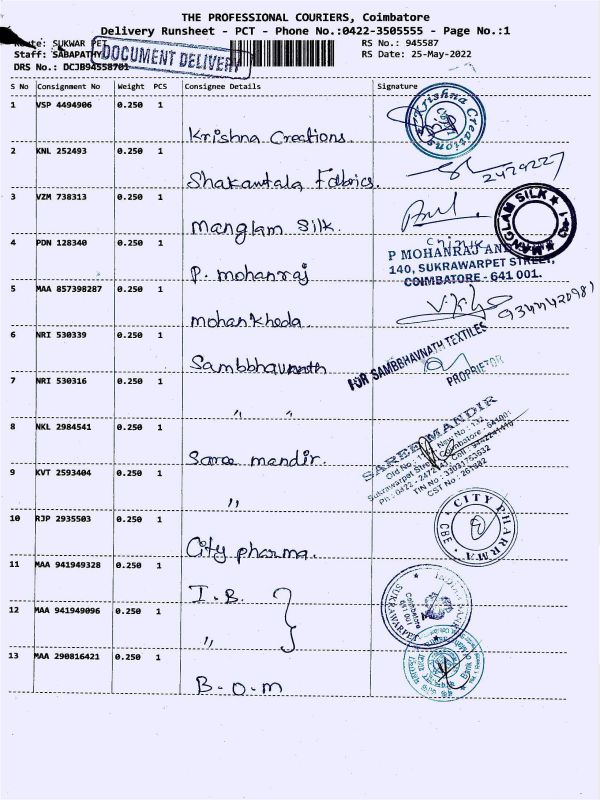 THE PROFESSIONAL COURIERS, Coimbatore
Delivery Runsheet - PCT - Phone No.:0422-3505555 - Page No.:1
Route: SUKWAR PET
RS No.: 945587
Staff: SABAPATHY
DOCUMENT DELIVERY
RS Date: 25-May-2022
DRS No.: DCJB94558701
S No Consignment No Weight PCS Consignee Details Signature
1 VSP 4494906 0.250 1 Krishna Creations
Krishna Creations
2 KNL 252493 0.250 1 Shakuntala Fabrics.
2479227
3 VZM 738313 0.250 1 Manglam Silk.
MANGLAM SILK
4 PDN 128340 0.250 1 P. mohanraj
P MOHANRAJ AND
140, SUKRAWARPET STREET,
COIMBATORE - 641 001.
5 MAA 857398287 0.250 1 mohankheda.
6 NRI 530339 0.250 1 Sambbhavnath
FOR SAMBBHAVNATH TEXTILES
PROPRIETOR
7 NRI 530316 0.250 1 " "
8 NKL 2984541 0.250 1 Saree mandir.
SAREE MANDIR
New No : 132
Sukrawarpet Street, Coimbatore - 641001
TIN No : 33031763632
CST No : 261982
9 KVT 2593404 0.250 1 "
10 RJP 2935503 0.250 1 City pharma.
CITY PHARMA
CBE
11 MAA 941949328 0.250 1 I.B.
SUKRAWARPET
Coimbatore
641 001
12 MAA 941949096 0.250 1 "
13 MAA 290816421 0.250 1 B.O.M